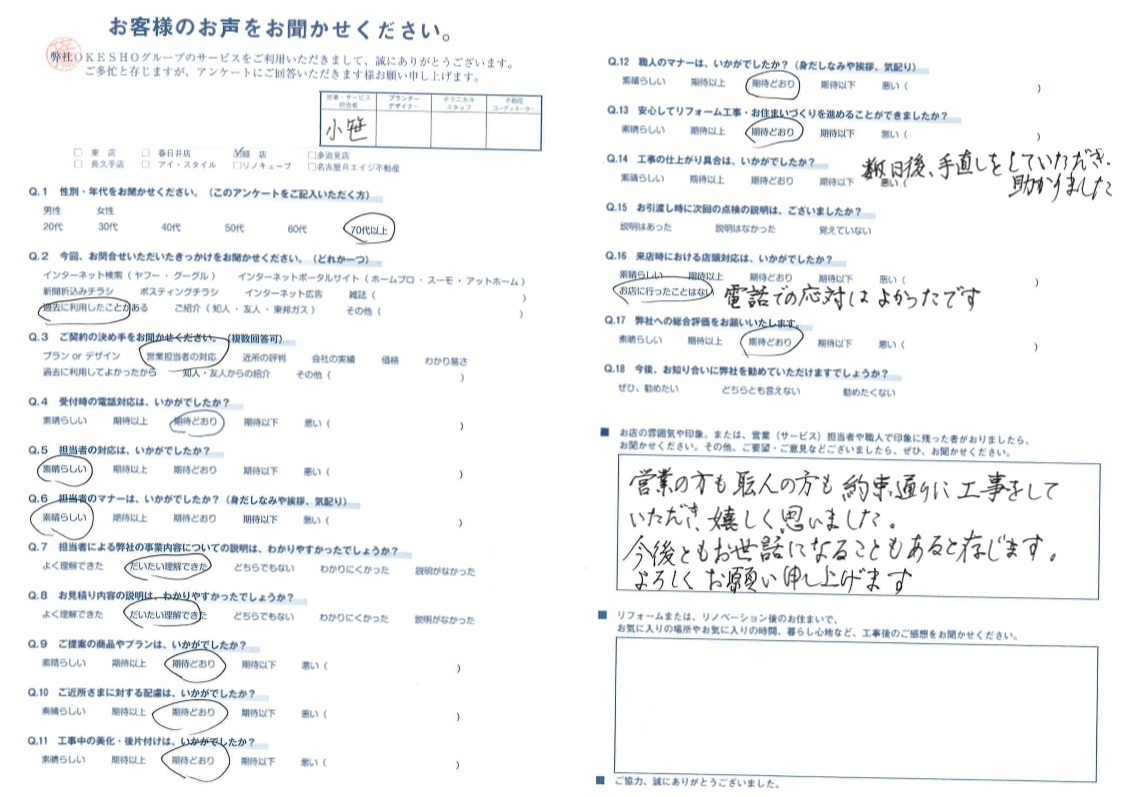 お客様のお声をお聞かせください。
弊社OKESHOグループのサービスをご利用いただきまして、誠にありがとうございます。
ご多忙と存じますが、アンケートにご回答いただきます様お願い申し上げます。
営業・サービス担当者 プランナーデザイナー テクニカルスタッフ 不動産コーディネーター
小笹
□ 東 店 □ 春日井店 ☑緑 店 □多治見店
□ 長久手店 □ アイ・スタイル □リノキューブ □名古屋Rエイジ不動産
Q.1 性別・年代をお聞かせください。（このアンケートをご記入いただく方）
男性 女性
20代 30代 40代 50代 60代 70代以上
Q.2 今回、お問合せいただいたきっかけをお聞かせください。（どれか一つ）
インターネット検索（ ヤフー ・ グーグル ） インターネットポータルサイト（ ホームプロ ・ スーモ ・ アットホーム ）
新聞折込みチラシ ポスティングチラシ インターネット広告 雑誌（ ）
過去に利用したことがある ご紹介（ 知人 ・ 友人 ・ 東邦ガス ） その他（ ）
Q.3 ご契約の決め手をお聞かせください。（複数回答可）
プラン or デザイン 営業担当者の対応 近所の評判 会社の実績 価格 わかり易さ
過去に利用してよかったから 知人・友人からの紹介 その他（ ）
Q.4 受付時の電話対応は、いかがでしたか？
素晴らしい 期待以上 期待どおり 期待以下 悪い（ ）
Q.5 担当者の対応は、いかがでしたか？
素晴らしい 期待以上 期待どおり 期待以下 悪い（ ）
Q.6 担当者のマナーは、いかがでしたか？（身だしなみや挨拶、気配り）
素晴らしい 期待以上 期待どおり 期待以下 悪い（ ）
Q.7 担当者による弊社の事業内容についての説明は、わかりやすかったでしょうか？
よく理解できた だいたい理解できた どちらでもない わかりにくかった 説明がなかった
Q.8 お見積り内容の説明は、わかりやすかったでしょうか？
よく理解できた だいたい理解できた どちらでもない わかりにくかった 説明がなかった
Q.9 ご提案の商品やプランは、いかがでしたか？
素晴らしい 期待以上 期待どおり 期待以下 悪い（ ）
Q.10 ご近所さまに対する配慮は、いかがでしたか？
素晴らしい 期待以上 期待どおり 期待以下 悪い（ ）
Q.11 工事中の美化・後片付けは、いかがでしたか？
素晴らしい 期待以上 期待どおり 期待以下 悪い（ ）
Q.12 職人のマナーは、いかがでしたか？（身だしなみや挨拶、気配り）
素晴らしい 期待以上 期待どおり 期待以下 悪い（ ）
Q.13 安心してリフォーム工事・お住まいづくりを進めることができましたか？
素晴らしい 期待以上 期待どおり 期待以下 悪い（ ）
Q.14 工事の仕上がり具合は、いかがでしたか？
素晴らしい 期待以上 期待どおり 期待以下 悪い（
数日後、手直しをしていただき、
助かりました
Q.15 お引渡し時に次回の点検の説明は、ございましたか？
説明はあった 説明はなかった 覚えていない
Q.16 来店時における店頭対応は、いかがでしたか？
素晴らしい 期待以上 期待どおり 期待以下 悪い（ ）
お店に行ったことはない 電話での応対はよかったです
Q.17 弊社への総合評価をお願いいたします。
素晴らしい 期待以上 期待どおり 期待以下 悪い（ ）
Q.18 今後、お知り合いに弊社を勧めていただけますでしょうか？
ぜひ、勧めたい どちらとも言えない 勧めたくない
■ お店の雰囲気や印象。または、営業（サービス）担当者や職人で印象に残った者がおりましたら、
お聞かせください。その他、ご要望・ご意見などございましたら、ぜひ、お聞かせください。
営業の方も職人の方も約束通りに工事をして
いただき、嬉しく思いました。
今後ともお世話になることもあると存じます。
よろしくお願い申し上げます
■ リフォームまたは、リノベーション後のお住まいで、
お気に入りの場所やお気に入りの時間、暮らし心地など、工事後のご感想をお聞かせください。
■ ご協力、誠にありがとうございました。